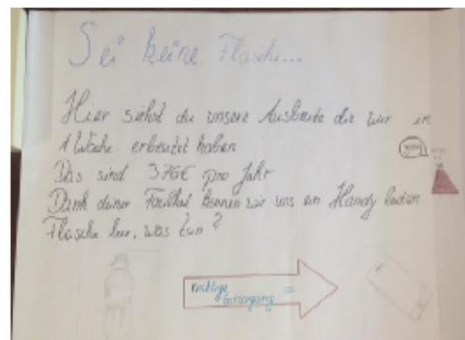 Sei keine Flasche...
Hier siehst du unsere Ausbeute die wir in
1 Woche erbeutet haben
Das sind 376€ pro Jahr
Dank deiner Faulheit können wir uns ein Handy leisten
Flasche leer, was tun?
richtige
Entsorgung =